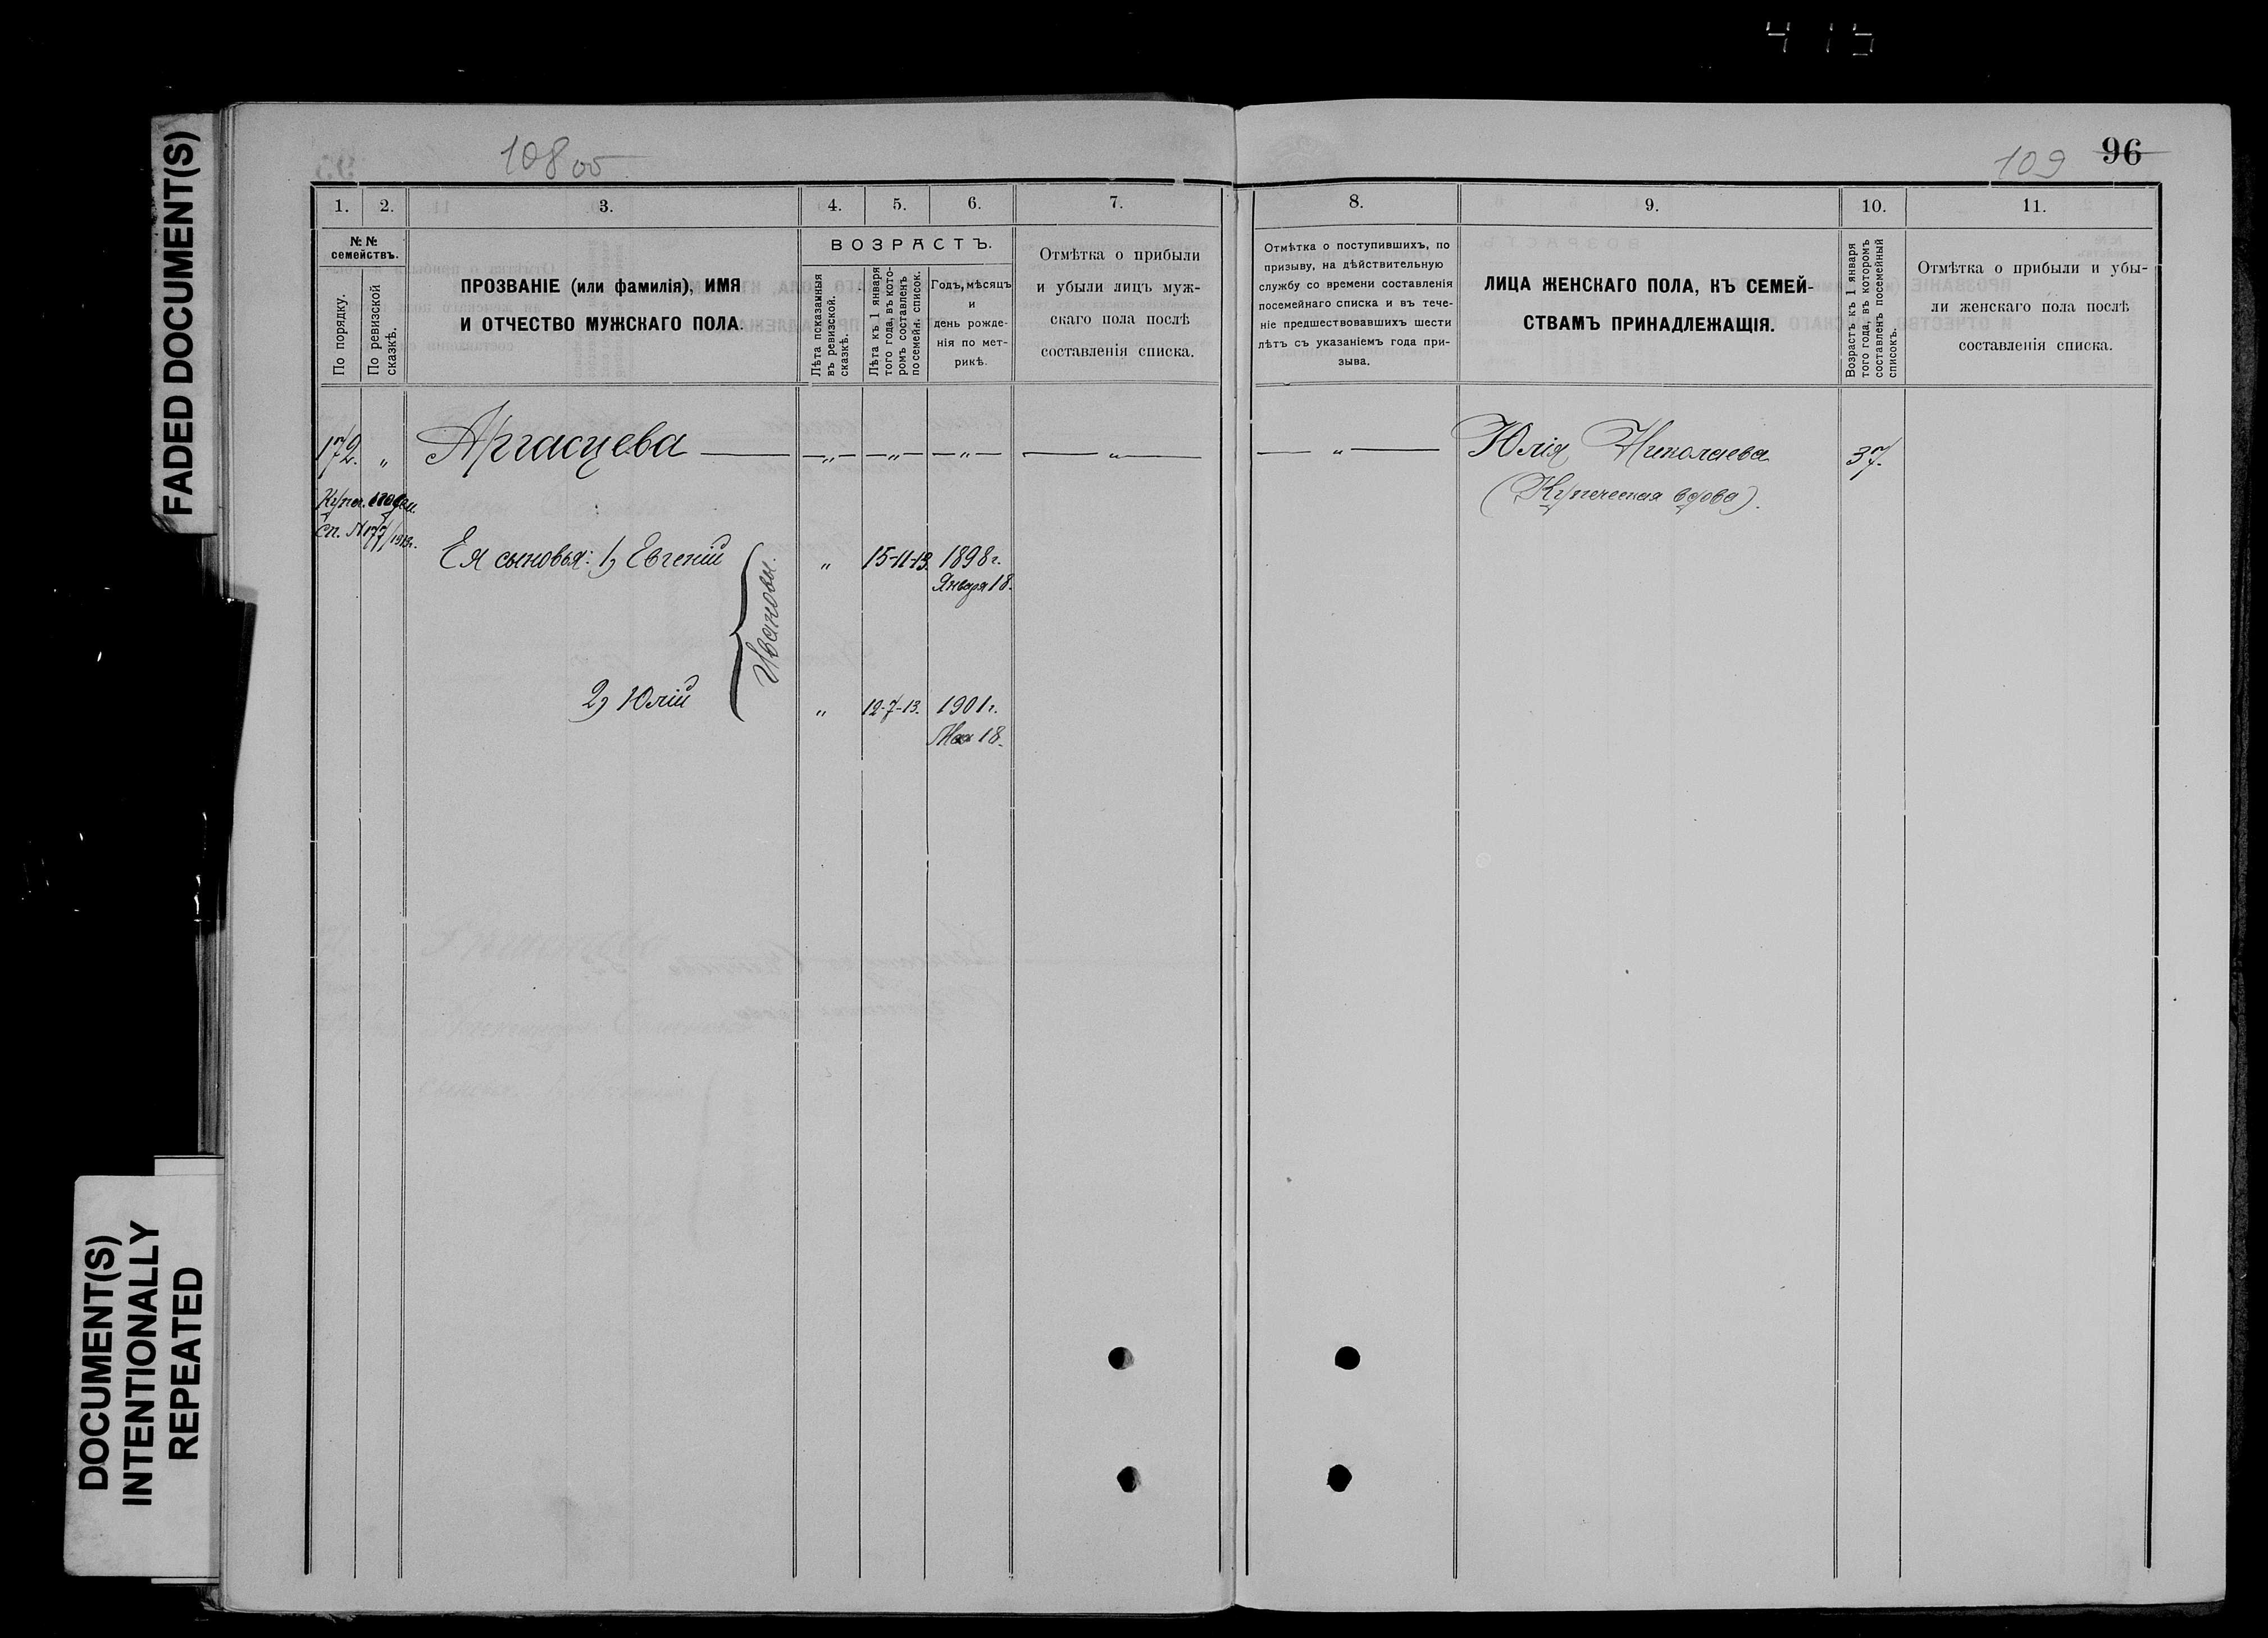 415
FADED DOCUMENT(S)
DOCUMENT(S)
INTENTIONALLY
REPEATED
108 об
109 96
1. 2. 3. 4. 5. 6. 7.
№ №
семействъ.
По порядку.
По ревизской
сказкѣ.
ПРОЗВАНІЕ (или фамилія), ИМЯ
И ОТЧЕСТВО МУЖСКАГО ПОЛА.
ВОЗРАСТЪ.
Лѣта показанныя
въ ревизской
сказкѣ.
Лѣта къ 1 января
того года, въ кото-
ромъ составленъ
посемейн. список.
Годъ, мѣсяцъ
и
день рожде-
нія по мет-
рикѣ.
Отмѣтка о прибыли
и убыли лицъ муж-
скаго пола послѣ
составленія списка.
8. 9. 10. 11.
Отмѣтка о поступившихъ, по
призыву, на дѣйствительную
службу со времени составленія
посемейнаго списка и въ тече-
ніе предшествовавшихъ шести
лѣтъ съ указаніемъ года при-
зыва.
ЛИЦА ЖЕНСКАГО ПОЛА, КЪ СЕМЕЙ-
СТВАМЪ ПРИНАДЛЕЖАЩІЯ.
Возрастъ къ 1 января
того года, въ которомъ
составленъ посемейный
списокъ.
Отмѣтка о прибыли и убы-
ли женскаго пола послѣ
составленія списка.
172. „ Аргасцева — „ — — „ — — „ — — „ —
Сп. № 177/1913г.
Ея сыновья: 1, Евгеній „ 15-11-13. 1898 г.
Января 18.
Ивановы.
2, Юлій „ 12-7-13. 1901 г.
Мая 18.
— „ — Юлія Николаева 37.
(Купеческая вдова).